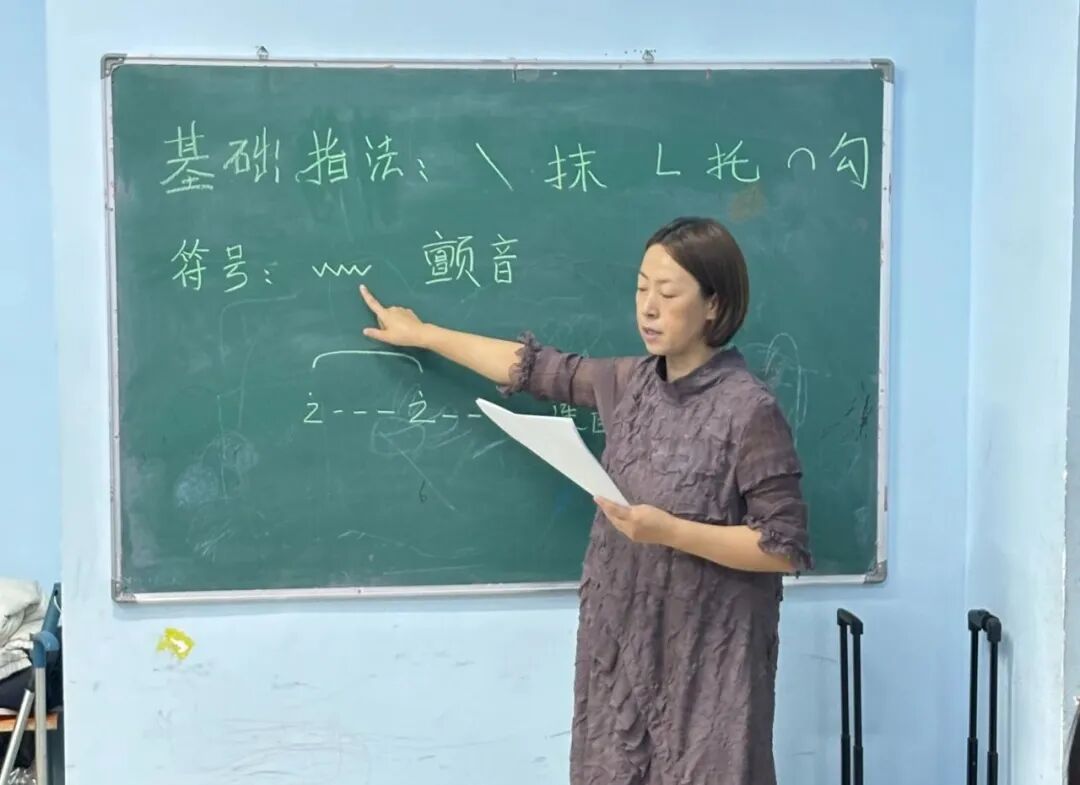 基础指法：\ 抹 L 托 ∩ 勾
符号： 颤音
2̇ - - - 2̇ - -